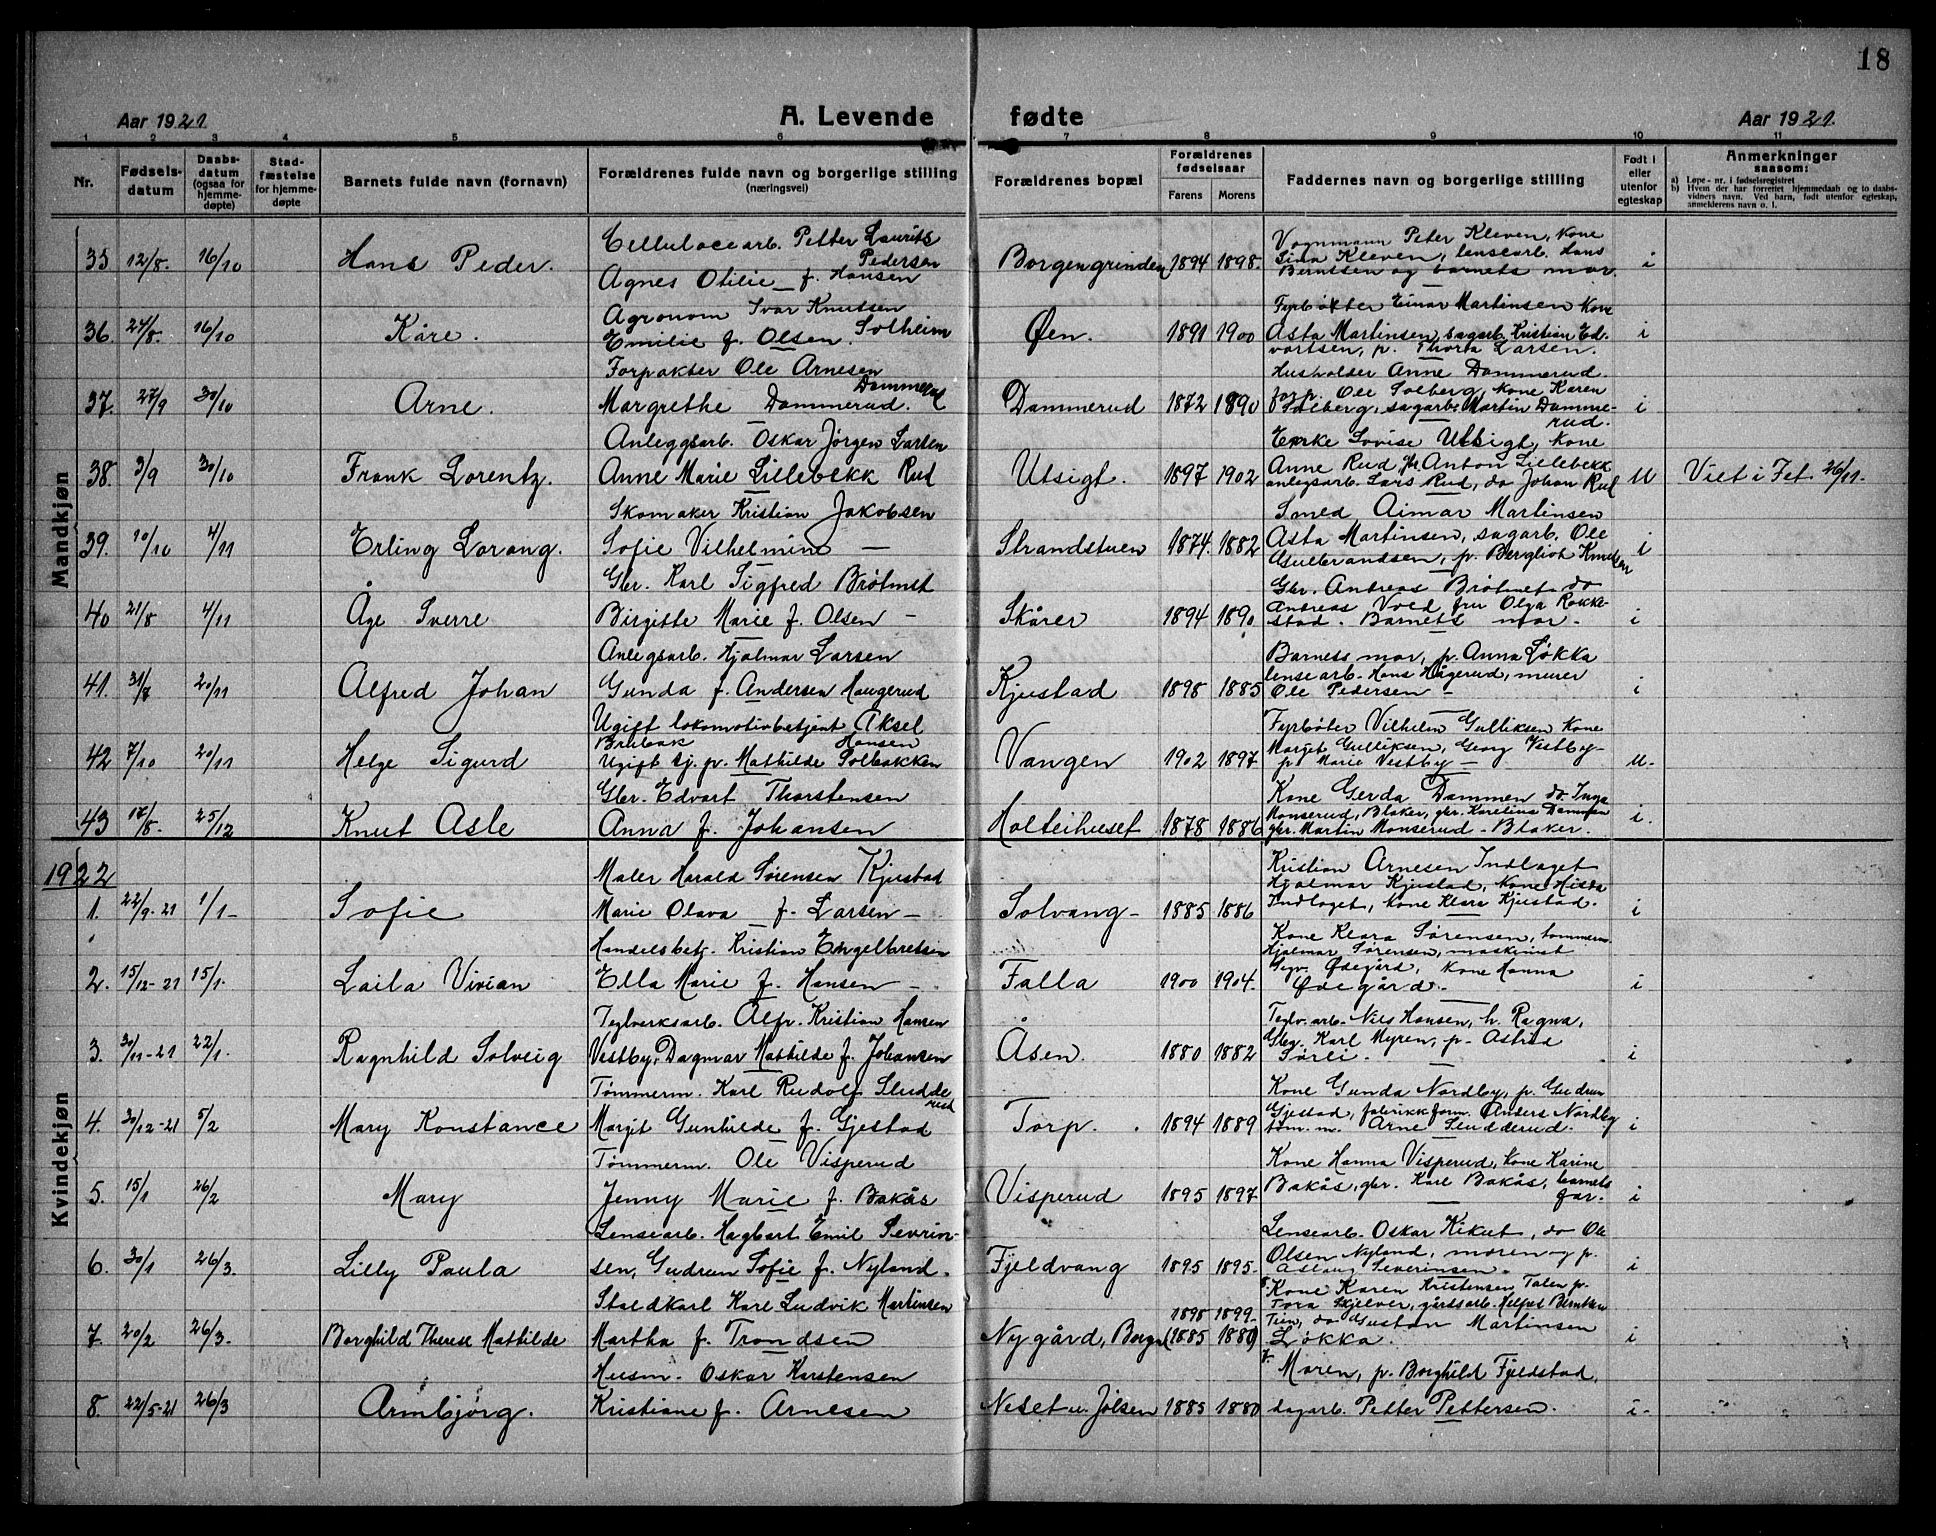 18
Aar 1921
A. Levende fødte
Aar 1921.
1 2 3 4 5 6 7 8 9 10 11
Nr.
Fødselsdatum
Daabsdatum (ogsaa for hjemmedøpte)
Stadfæstelse for hjemmedøpte
Barnets fulde navn (fornavn)
Forældrenes fulde navn og borgerlige stilling (næringsvei)
Forældrenes bopæl
Forældrenes fødselsaar
Farens Morens
Faddernes navn og borgerlige stilling
Født i eller utenfor egteskap
Anmerkninger saasom:
a) Løpe-nr. i fødselsregistret
b) Hvem der har forrettet hjemmedaab og to daabsvidners navn. Ved barn, født utenfor egteskap, anmelderens navn o. l.
Mandkjøn
35 12/8. 16/10 Hans Peder.
Cellulosearb. Petter Laurits
Pedersen
Agnes Otilie f. Hansen
Borgengrinden 1894 1898.
Vognmann Peter Kleven, Kone
Gina Kleven, lensearb. Hans
Berntsen og barnets mor.
i
36. 24/8. 16/10 Kåre.
Agronom Ivar Knutsen
Solheim
Emilie f. Olsen.
Øen. 1891 1900
Fyrbøter Einar Martinsen Kone
Asta Martinsen, sagarb. Kristian Ed-
vartsen, p. Thora Larsen.
i
37. 27/9 30/10 Arne.
Forpakter Ole Arnesen
Dammerud
Margrethe Dammerud.
Dammerud 1872 1890
Husholder Anne Dammerud
forp. Ole Solberg, Kone Karen
Solberg, sagarb. Martin Damme-
rud.
i
38. 3/9 30/10 Frank Lorentz.
Anleggsarb. Oskar Jørgen Larsen
Anne Marie Lillebekk Rud
Utsigt. 1897 1902
Enke Lovise Utsigt, Kone
Anne Rud, Anton Lillebekk
anlegsarb. Lars Rud, do Johan Rud
U
Viet i Fet 26/11.
39. 10/10 4/11 Erling Lorang.
Skomaker Kristian Jakobsen
Sofie Vilhelmine —
Strandstuen 1874. 1882
Smed Aimar Martinsen
Asta Martinsen, sagarb. Ole
Gulbrandsen, p. Bergliot Knutsen
i
40 21/8 4/11 Åge Sverre
Gbr. Karl Sigfred Brøtmet
Birgitte Marie f. Olsen —
Skårer 1894 1890
Gbr. Andreas Brøtmet do
Andreas Voll, fru Olga Rokke-
stad. Barnets mor.
i
41. 31/8 20/11 Alfred Johan
Anlegsarb. Hjalmar Larsen
Gunda f. Andersen Haugerud
Kjustad 1898 1885
Barnets mor, p. Anna Løkka
lensearb. Hans Hågerud, murer
Ole Pedersen —
i
42 7/10 20/11 Helge Sigurd
Ugift lokomotivbetjent Aksel
Brubak Hansen
Ugift tj. p. Mathilde Solbakken
Vangen 1902 1897
Fyrbøter Vilhelm Gulliksen Kone
Margit Gulliksen, Georg Vestby
p. Marie Vestby —
U.
43 17/8. 25/12 Knut Asle
Gbr. Edvart Thorstensen
Anna f. Johansen
Holteihuset 1878 1886
Kone Gerda Dammen do. Inga
Monserud, Blaker, gbr. Karelius Dammen
gbr. Martin Monserud - Blaker.
i.
1922
Kvindekjøn
1. 22/9-21 1/1 Sofie
Maler Harald Sørensen Kjustad
Marie Olava f. Larsen —
Solvang 1885 1886
Kristian Arnesen Indlaget
Hjalmar Kjustad, Kone Hilda
Indlaget, Kone Klara Kjustad.
i
2. 15/12-21 15/1. Laila Vivian
Handelsbetj. Kristian Engelbretsen
Ella Marie f. Hansen —
Falla 1900 1904.
Kone Klara Sørensen, tømmerm.
Hjalmar Sørensen, maskinist
Ødegård, Kone Hanna
Ødegård.
i
3. 30/11-21 22/1. Ragnhild Solveig
Teglverksarb. Alfr. Kristian Hansen
Vestby, Dagmar Mathilde f. Johansen
Åsen. 1880 1882
Teglv. arb. Nils Hansen, h. Ragna,
Gbr. Karl Myren, p. Astrid
Sørli.
i
4. 30/12-21 5/2 Mary Konstance
Tømmerm. Karl Rudolf Sludde
rud
Margit Gunhilde f. Gjestad
Torp. 1894 1889
Kone Gunda Nordby, p. Gudrun
Gjestad, fabrikkform. Anders Nordby
tøm. m. Arne Sludderud.
i
5. 15/1 26/2 Mary
Tømmerm. Ole Visperud
Jenny Marie f. Bakås
Visperud 1895 1897
Kone Hanna Visperud, Kone Karine
Bakås, gbr. Karl Bakås, barnets
far.
i
6. 30/1 26/3. Lilly Paula
Lensearb. Hagbart Emil Sevrin-
sen, Gudrun Sofie f. Nyland.
Fjeldvang 1895 1895
Lensearb. Oskar Kikut, do Ole
Olsen Nyland, moren og p.
Aslaug Severinsen.
i
7. 20/2 26/3. Borghild Therese Mathilde
Staldkarl Karl Ludvik Martinsen
Martha f. Trondsen
Nygård, Borgen
1898 1899
(1885 1880)
Kone Karen Kristensen, Talen p.
Tora Skjelver, gårdsarb. Helfet Berntsen
Tien, do Gustav Martinsen
Løkka.
i
8. 22/5-21 26/3 Armbjørg.
Husm. Oskar Karstensen
Kristiane f. Arnesen
Neset u. Jølsen 1885 1880
Moren, p. Borghild Fjeldstad,
dagarb. Petter Pettersen.
i